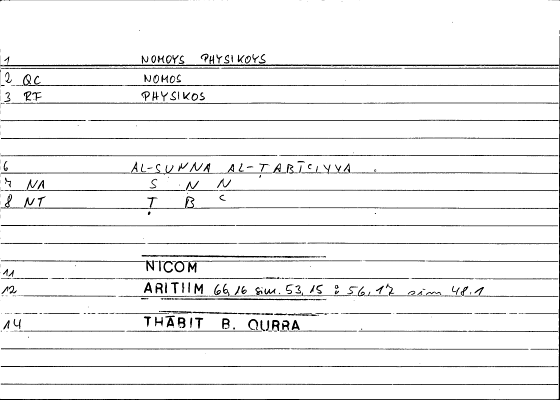 1 NOMOYS PHYSIKOYS
2 QC NOMOS
3 RF PHYSIKOS
6 AL-SUNNA AL-ṬABĪCIYYA .
7 NA S N N
8 NT Ṭ B C
11 NICOM
12 ARITIIM 66,16 sim. 53,15 : 56,17 sim 48.1
14 THĀBIT B. QURRA